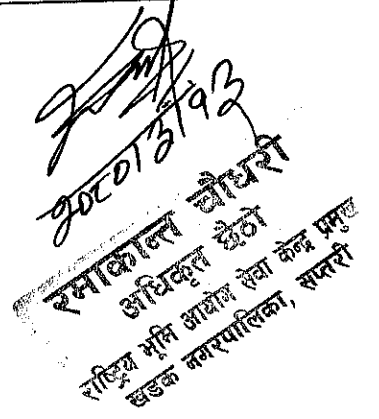 २०८०।३।१३
रमाकान्त चौधरी
अधिकृत छैठौ
राष्ट्रिय भूमि आयोग सेवा केन्द्र प्रमुख
खडक नगरपालिका, सप्तरी